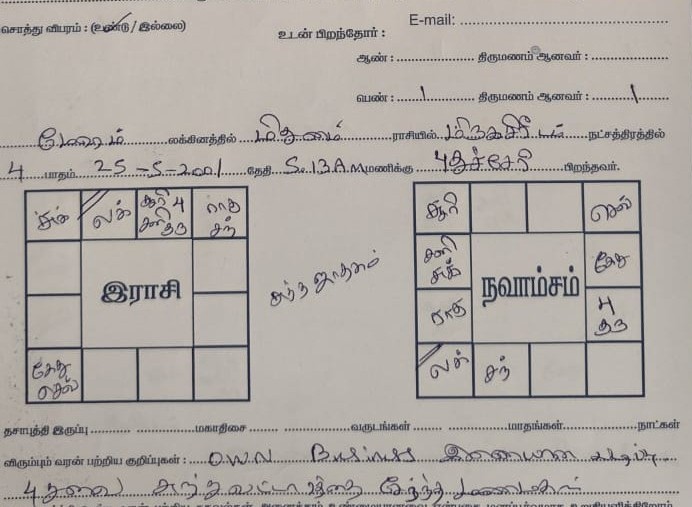 சொத்து விபரம் : (உண்டு / இல்லை)
E-mail:
உடன் பிறந்தோர் :
ஆண் : திருமணம் ஆனவர் :
பெண் : 1 திருமணம் ஆனவர் : 1
மேஷம் லக்கினத்தில் மிதுனம் ராசியில் மிருகசீரிடம் நட்சத்திரத்தில்
4 பாதம் 25-5-2001 தேதி 5.13 A.M மணிக்கு புதுச்சேரி பிறந்தவர்.
சுக் லக் சூரி பு சனி குரு ராகு சந்
இராசி
கேது செவ்
சுத்த ஜாதகம்
சூரி செவ்
சனி சுக் கேது
நவாம்சம்
ராகு பு குரு
லக் சந்
தசாபுத்தி இருப்பு மகாதிசை வருடங்கள் மாதங்கள் நாட்கள்
விரும்பும் வரன் பற்றிய குறிப்புகள் : Own Business இணையான படிப்பு